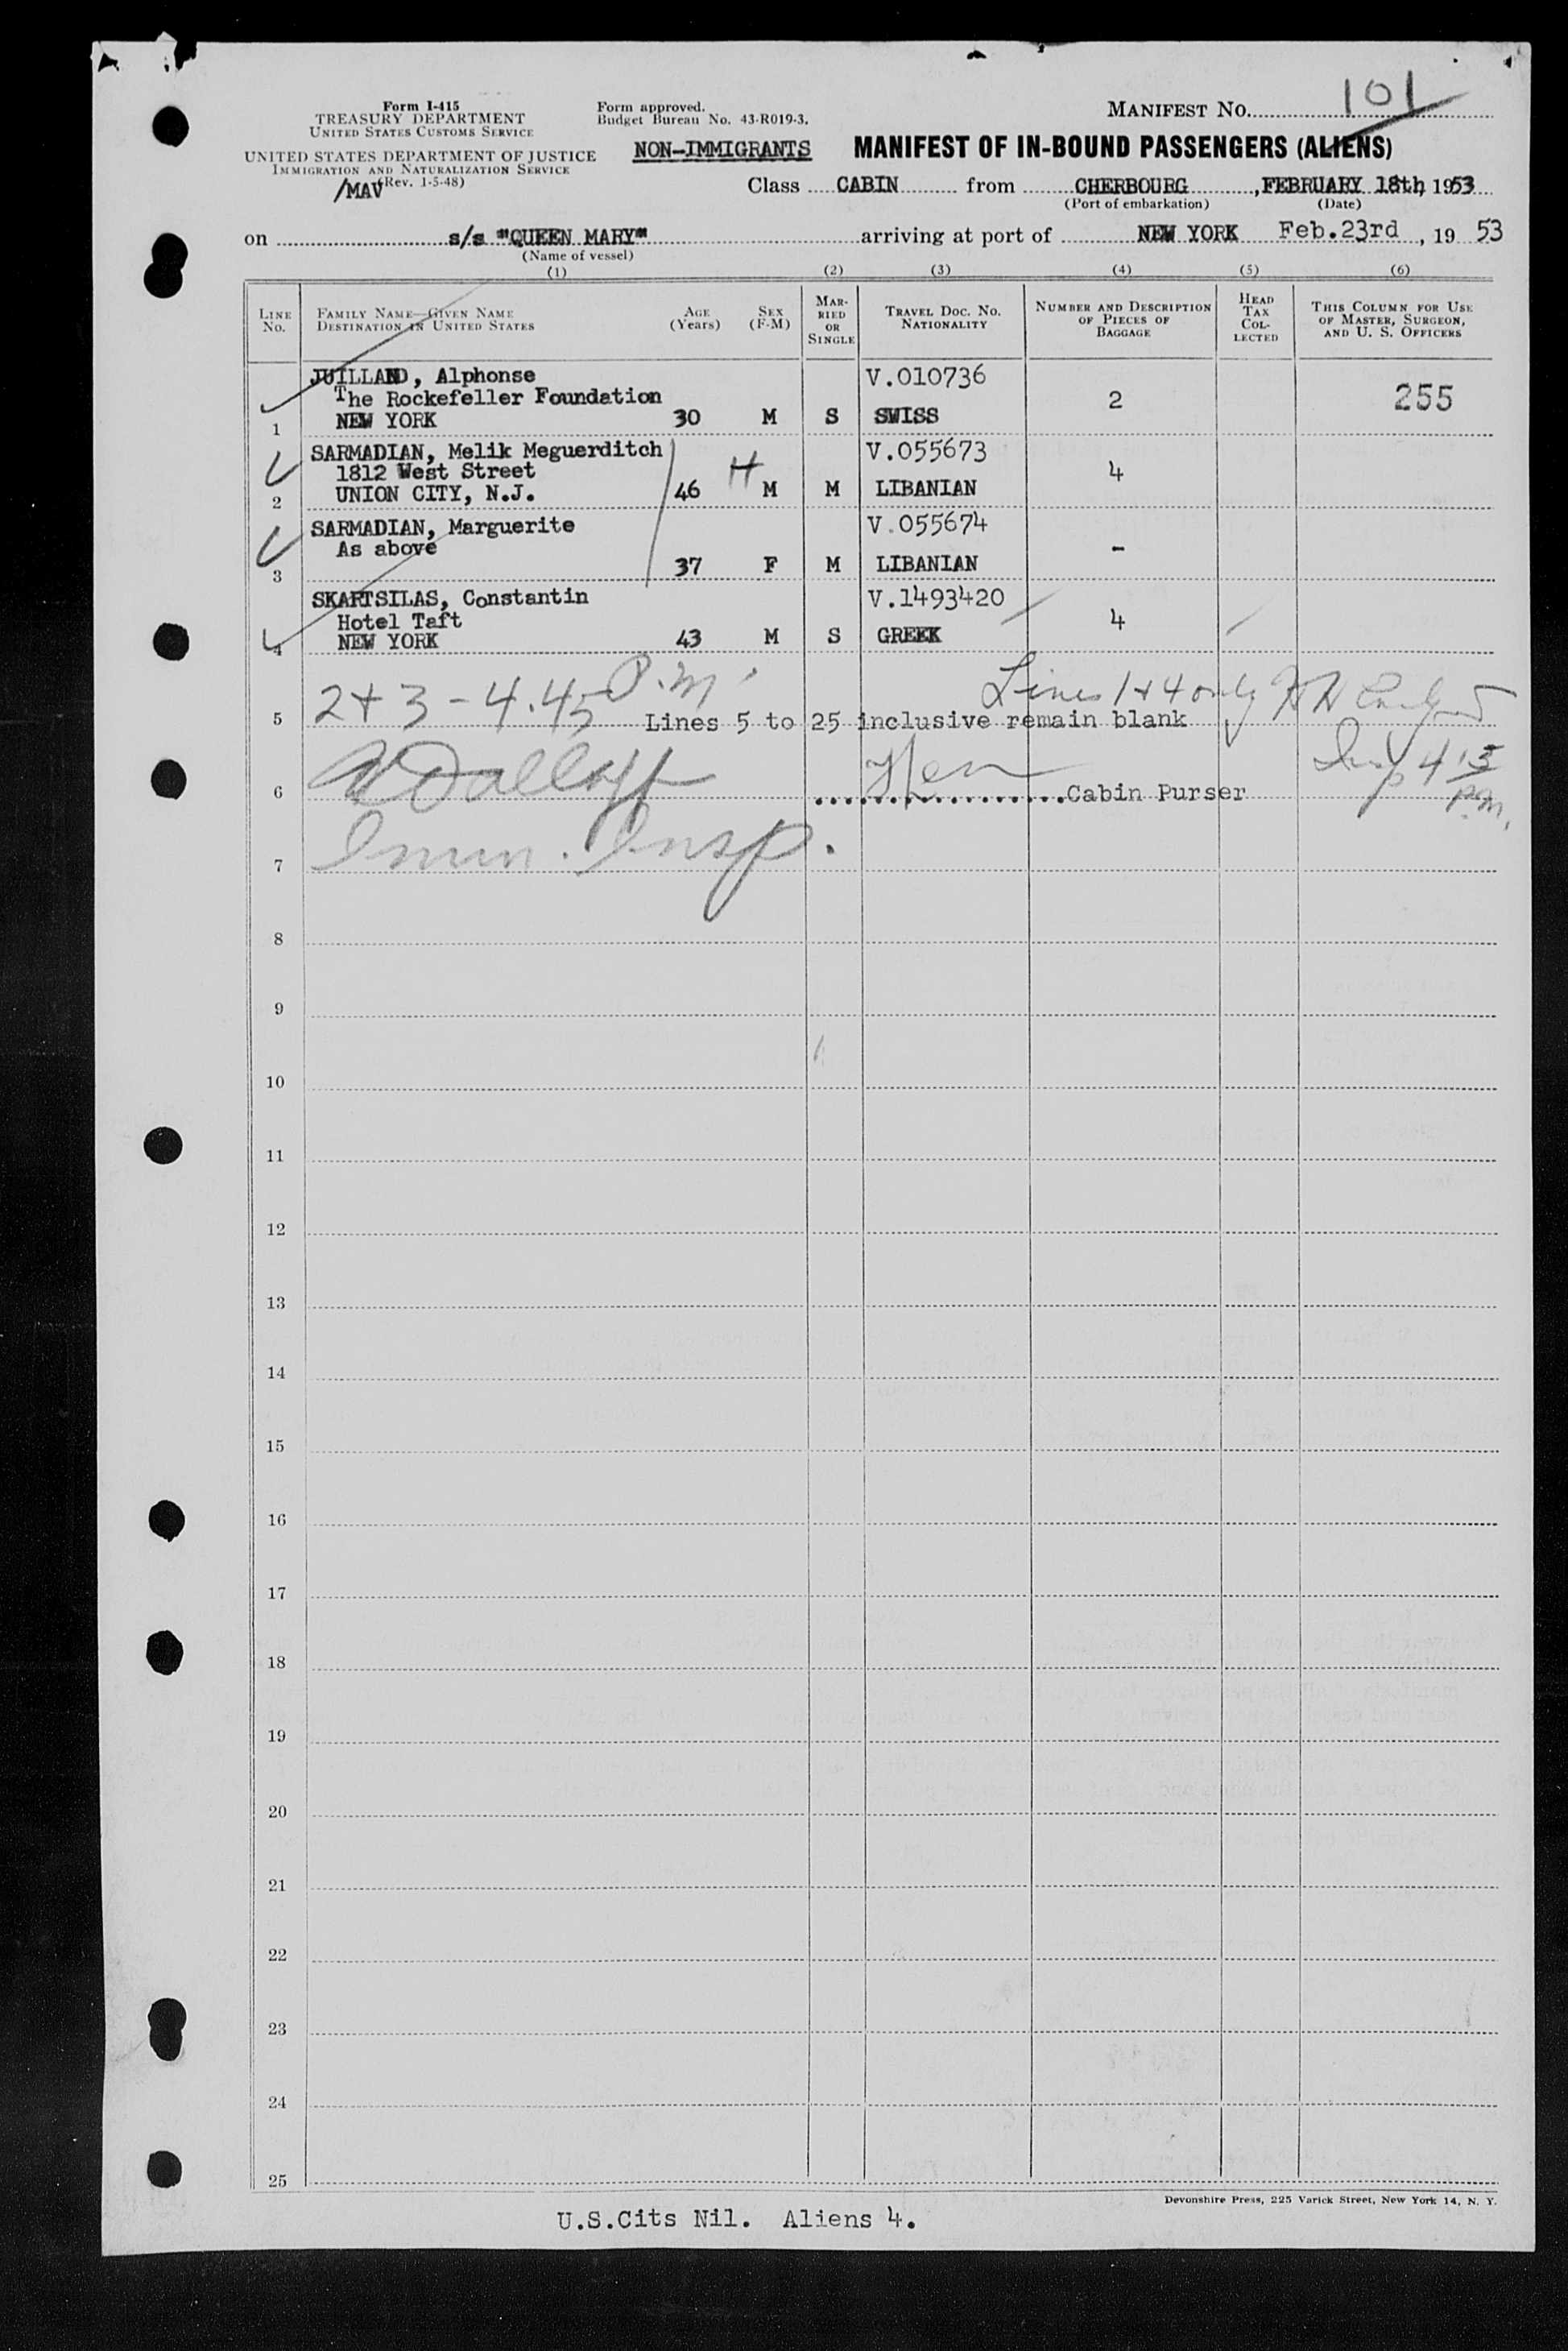 MANIFEST NO. 101
Form I-415
TREASURY DEPARTMENT
UNITED STATES CUSTOMS SERVICE
Form approved.
Budget Bureau No. 43-R019-3.
UNITED STATES DEPARTMENT OF JUSTICE
IMMIGRATION AND NATURALIZATION SERVICE
(Rev. 1-5-48)
/MAV
NON-IMMIGRANTS MANIFEST OF IN-BOUND PASSENGERS (ALIENS)
Class CABIN from CHERBOURG, FEBRUARY 18th, 1953
(Port of embarkation) (Date)
on s/s "QUEEN MARY" arriving at port of NEW YORK Feb.23rd, 19 53
(Name of vessel)
(1) (2) (3) (4) (5) (6)
LINE NO. FAMILY NAME—GIVEN NAME DESTINATION IN UNITED STATES AGE (Years) SEX (F-M) MARRIED OR SINGLE TRAVEL DOC. NO. NATIONALITY NUMBER AND DESCRIPTION OF PIECES OF BAGGAGE HEAD TAX COLLECTED THIS COLUMN FOR USE OF MASTER, SURGEON, AND U. S. OFFICERS
JUILLAND, Alphonse V.010736
The Rockefeller Foundation 2 255
1 NEW YORK 30 M S SWISS
SARMADIAN, Melik Meguerditch V.055673
1812 West Street H 4
2 UNION CITY, N.J. 46 M M LIBANIAN
SARMADIAN, Marguerite V.055674
As above -
3 37 F M LIBANIAN
SKARTSILAS, Constantin V.1493420
Hotel Taft 4
4 NEW YORK 43 M S GREEK
2+3 - 4.45 P.M. Lines 1+4 only
5 Lines 5 to 25 inclusive remain blank
Insp 4 15 P.M.
6 Cabin Purser
7 Imm. Insp.
8
9
10
11
12
13
14
15
16
17
18
19
20
21
22
23
24
25
Devonshire Press, 225 Varick Street, New York 14, N. Y.
U.S.Cits Nil. Aliens 4.